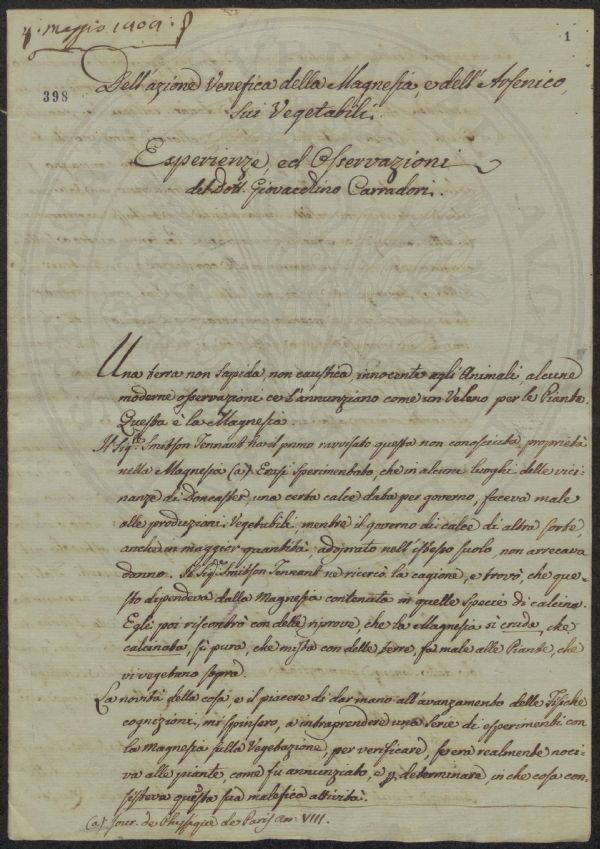 4. Maggio 1809.
1
398
Dell'azione Venefica della Magnesia, e dell'Arsenico,
sui Vegetabili.
Esperienze, ed Osservazioni
del Dott. Giovacchino Carradori.
Una terra non sapida, non caustica, innocente agli Animali, alcune
moderne osservazioni ce l'annunziano come un Veleno per le Piante.
Questa è la Magnesia.
Il Sigr. Smitson Tennant ha il primo ravvisato questa non conosciuta proprietà
nella Magnesia (a). Erasi sperimentato, che in alcune luoghi delle vici-
nanze di Doncaster, una certa calce data per governo, faceva male
alle produzioni Vegetabili, mentre il governo di calce di altra sorte,
anche in maggior quantità, adoprato nell'istesso suolo, non arrecava
danno. Il Sigr. Smitson Tennant ne ricercò la cagione, e trovò, che que-
sto dipendeva dalla Magnesia contenuta in quelle specie di calcina.
Egli poi riscontrò con delle riprove, che la Magnesia sì cruda, che
calcinata, sì pura, che mista con delle terre, fa male alle Piante, che
vi vegetano sopra.
La novità della cosa, e il piacere di dar mano all'avanzamento delle Fisiche
cognizioni, mi spinsero, a intraprendere una serie di esperimenti con
la Magnesia sulla Vegetazione, per verificare, se era realmente noci-
va alle piante, come fu annunziato, e p. determinare, in che cosa con-
sisteva questa sua malefica attività.
(a) Jour. de Physique de Paris an. VIII.